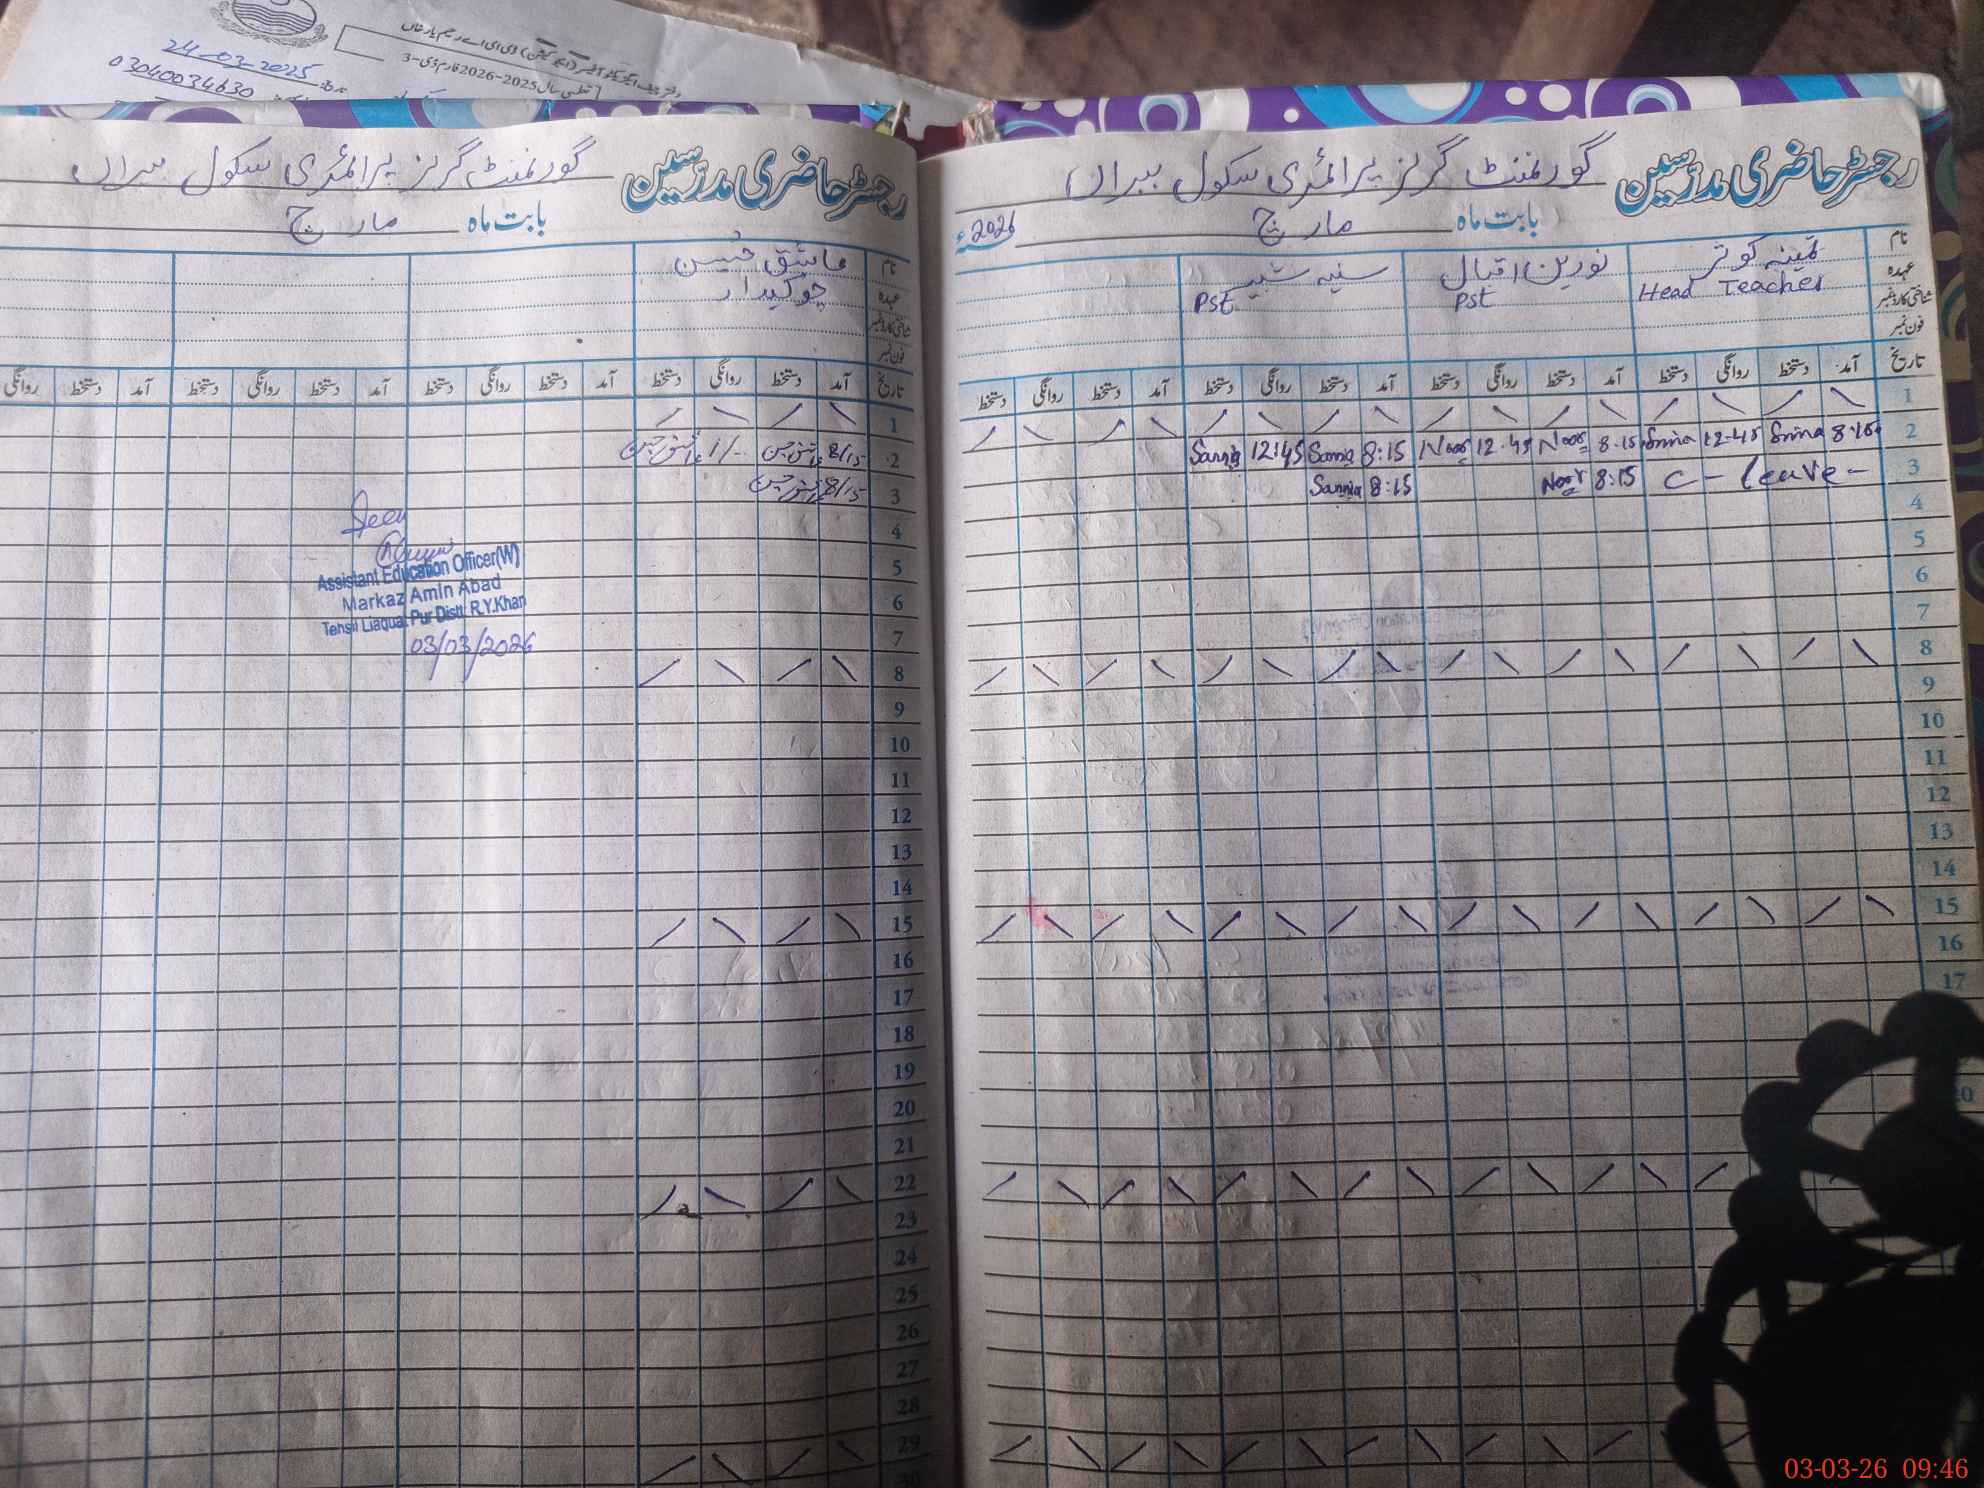 24-03-2025
03040034630
رجسٹر حاضری مدرسین گورنمنٹ گرلز پرائمری سکول ببراں
بابت ماہ مارچ 2026ء
نام ثمینہ کوثر نورین اقبال سنیہ شبیر
عہدہ Head Teacher Pst Pst
شناختی کارڈ نمبر
فون نمبر
تاریخ آمد دستخط روانگی دستخط آمد دستخط روانگی دستخط آمد دستخط روانگی دستخط آمد دستخط روانگی دستخط
1
2 8:15 Smina 12:45 Smina 8:15 Noor 12:45 Noor 8:15 Sannia 12:45 Sannia
3 C-leave- 8:15 Noor 8:15 Sannia
4
5
6
7
8
9
10
11
12
13
14
15
16
17
رجسٹر حاضری مدرسین گورنمنٹ گرلز پرائمری سکول ببراں
بابت ماہ مارچ
نام عاشق حسین
عہدہ چوکیدار
شناختی کارڈ نمبر
فون نمبر
تاریخ آمد دستخط روانگی دستخط آمد دستخط روانگی دستخط آمد دستخط روانگی دستخط آمد دستخط روانگی
1
2 8/15 عاشق حسین 1/- عاشق حسین
3 8/15 عاشق حسین
4
5
6
7
8
9
10
11
12
13
14
15
16
17
18
19
20
21
22
23
24
25
26
27
28
29
30
Seen
Assistant Education Officer(W)
Markaz Amin Abad
Tehsil Liaquat Pur Distt. R.Y.Khan
03/03/2026
03-03-26 09:46